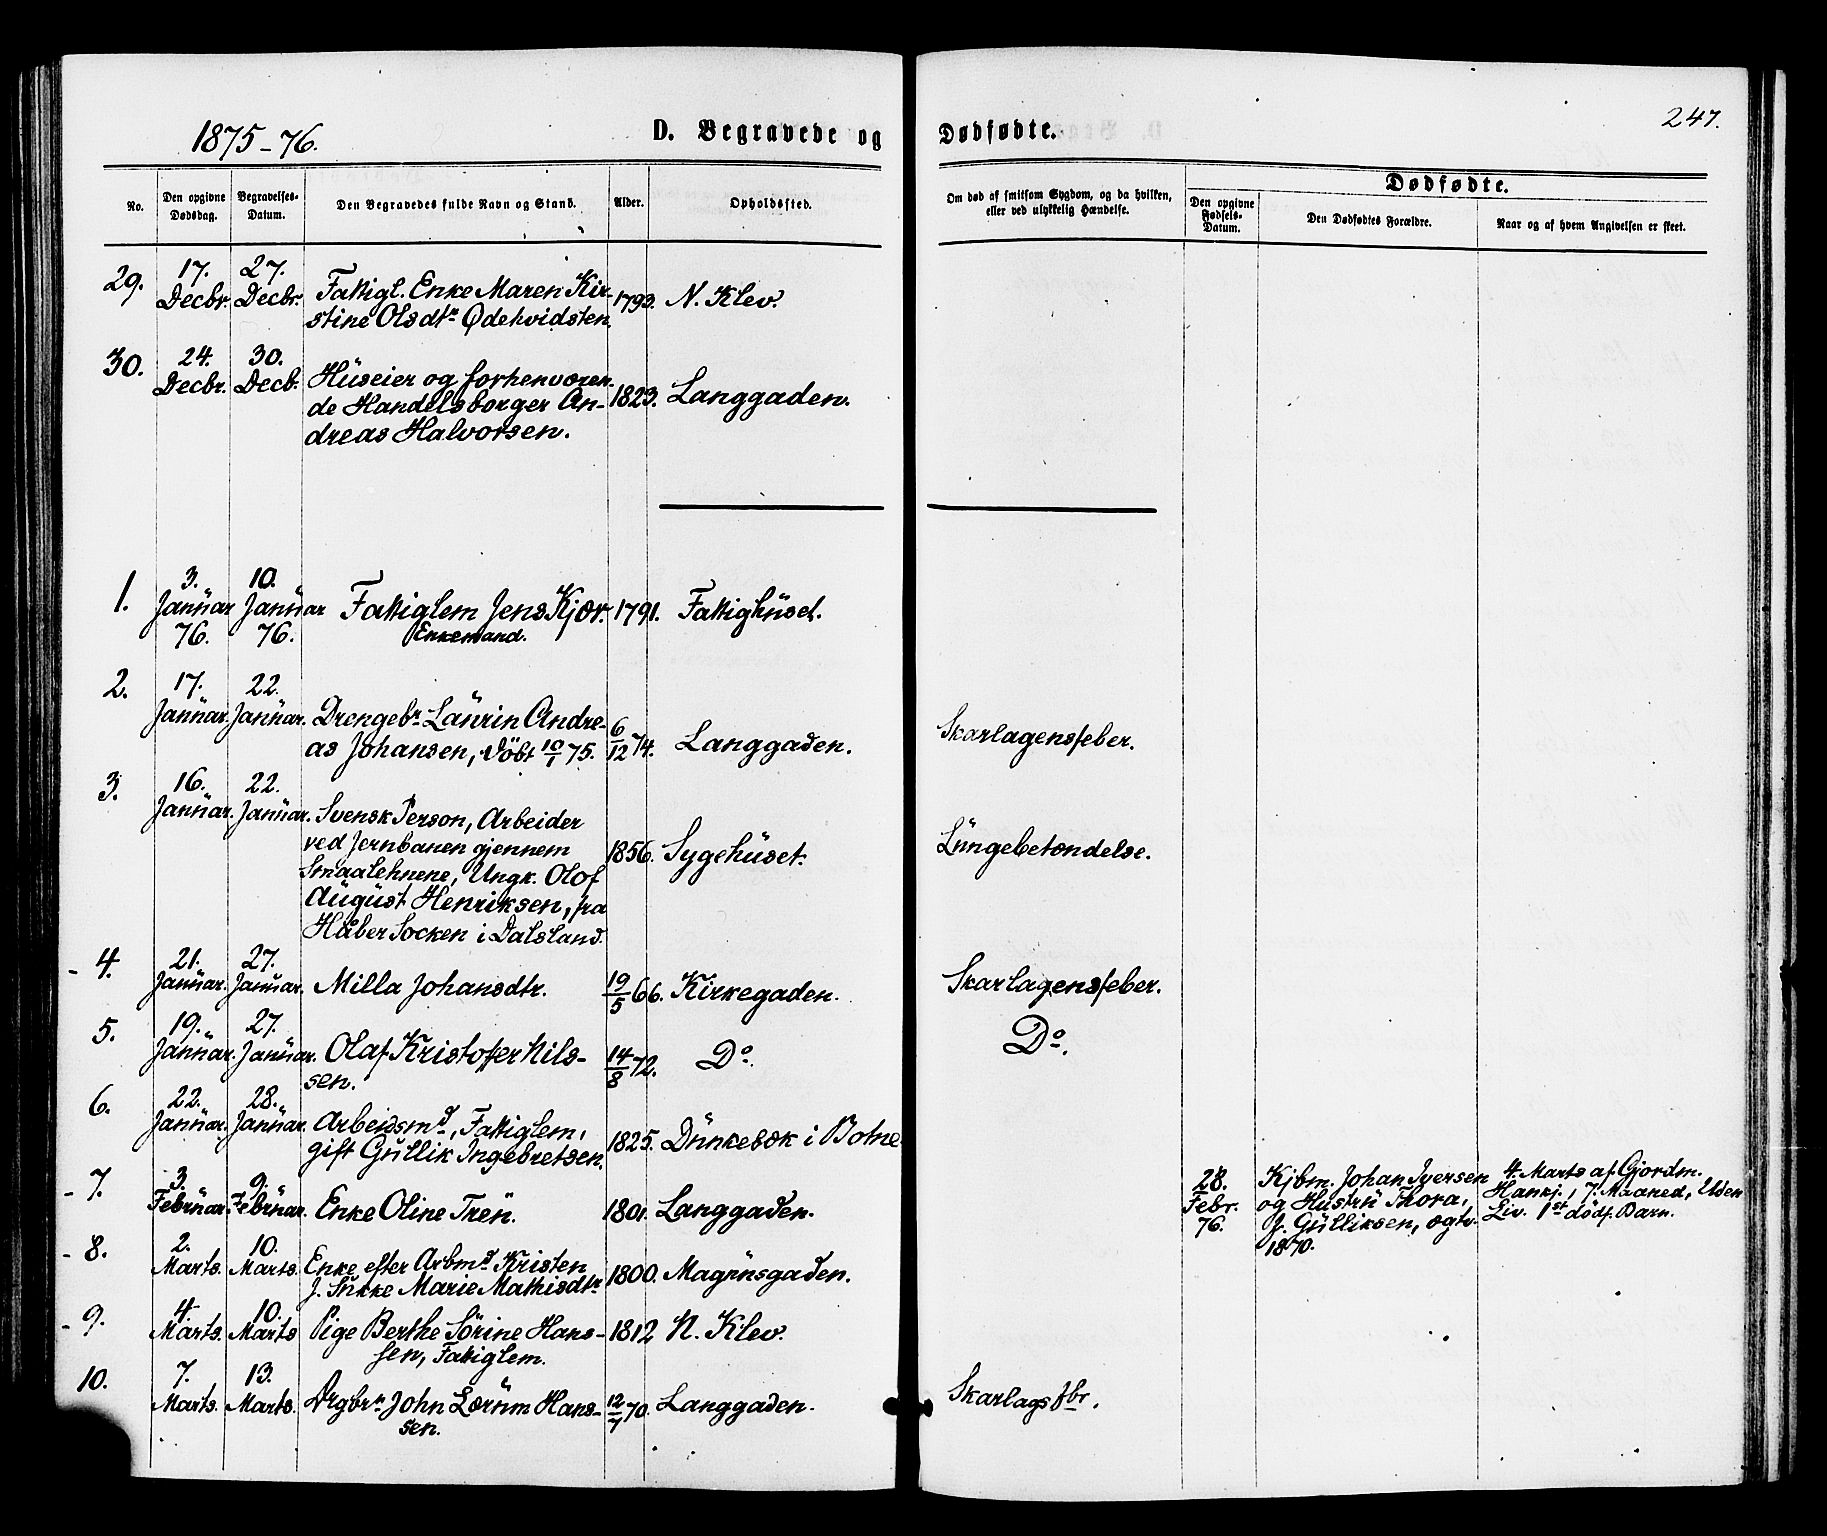 1875-76.
D. Begravede og Dødfødte.
247.
No.
Den opgivne Dødsdag.
Begravelses-Datum.
Den Begravedes fulde Navn og Stand.
Alder.
Opholdssted.
Om død af smitsom Sygdom, og da hvilken, eller ved ulykkelig Hændelse.
Dødfødte.
Den opgivne Fødsels-Datum.
Den Dødfødtes Forældre.
Naar og af hvem Angivelsen er skeet.
29. 17. Decbr. 27. Decbr. Fattigl. Enke Maren Kir-
stine Olsdtr Ødekvidsten. 1793. N. Klev.
30. 24. Decbr. 30. Decb. Hüseier og forhenværen-
de Handelsborger An- 1823. Langgaden.
dreas Halvorsen.
1. 3. Janüar 76. 10. Janüar 76. Fattiglem Jens Kjær. 1791. Fattighüset.
Enkemand.
2. 17. Janüar. 22. Janüar. Drengebr. Laürin Andre-
as Johansen, döbt 10/1 75. 6/12 74. Langgaden. Skarlagensfeber.
3. 16. Janüar. 22. Janüar. Svensk Person, Arbeider
ved Jernbanen gjennem 1856. Sygehüset. Lüngebetændelse.
Smaalehnene, Ungk. Olof
Aügüst Henriksen, fra
Håber Socken i Dalsland.
- 4. 21. Janüar. 27. Janüar. Milla Johansdtr. 19/5 66. Kirkegaden. Skarlagensfeber.
5. 19. Janüar. 27. Janüar. Olaf Kristoffer Nils- 14/8 72. Do. Do.
sen.
6. 22. Janüar. 28. Janüar. Arbeidsmd, Fattiglem,
gift Güllik Ingebretsen. 1825. Dünkebæk i Botne
- 7. 3. Febrüar. 9. Febrüar. Enke Oline Tren. 1801. Langgaden.
28. Febr. 76.
Kjbm. Johan Iversen
og Hüstrü Thora,
f. Gülliksen, ægtv.
1870.
4. Marts af Gjordm.
Hansj., 7. Maaned, Uden
Liv. 1st dødf. Barn.
- 8. 2. Marts. 10. Marts. Enke efter Arbmd Kristen
J. Sükke Marie Mathisdtr 1800. Magnüsgaden.
- 9. 4. Marts. 10. Marts Pige Berthe Sörine Hans- 1812 N. Klev.
sen, Fattiglem.
10. 7. Marts. 13. Marts. Drgbrn John Lærüm Hans- 12/7 70. Langgaden. Skarlagsfbr.
sen.